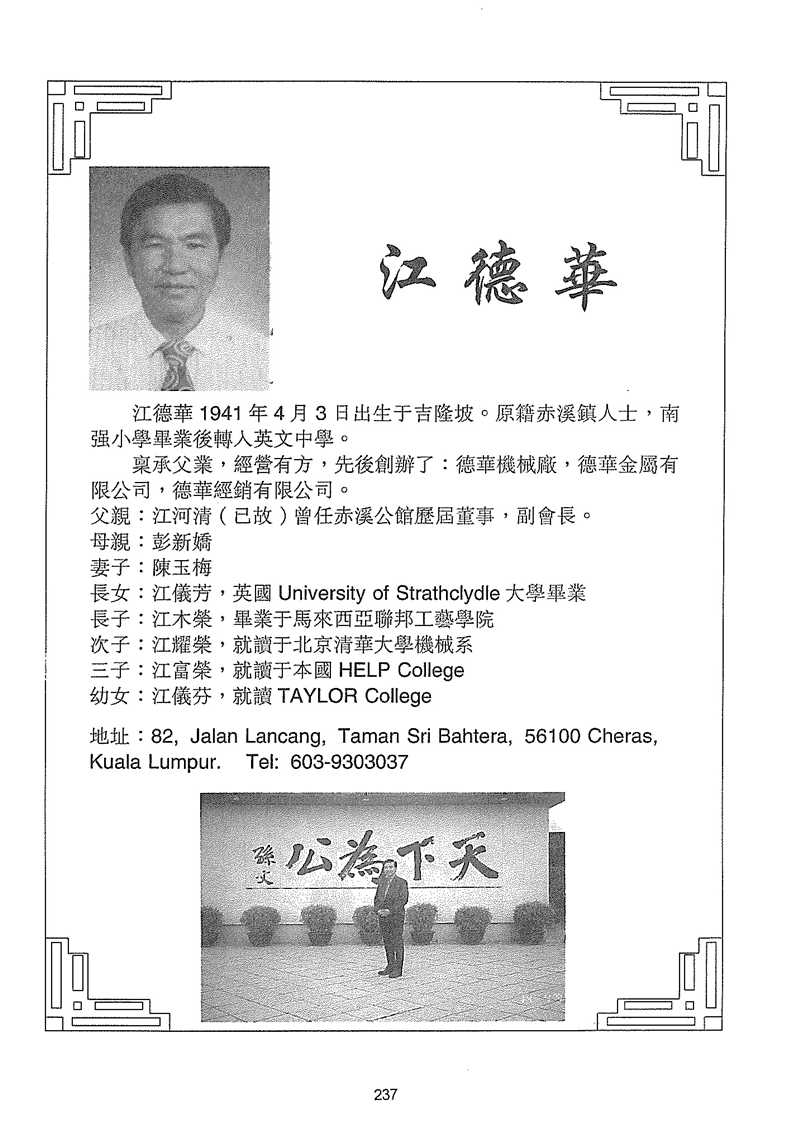 江德華
江德華 1941 年 4 月 3 日出生于吉隆坡。原籍赤溪鎮人士，南
强小學畢業後轉入英文中學。
稟承父業，經營有方，先後創辦了：德華機械廠，德華金屬有
限公司，德華經銷有限公司。
父親：江河清（已故）曾任赤溪公館歷屆董事，副會長。
母親：彭新嬌
妻子：陳玉梅
長女：江儀芳，英國 University of Strathclydle 大學畢業
長子：江木榮，畢業于馬來西亞聯邦工藝學院
次子：江耀榮，就讀于北京清華大學機械系
三子：江富榮，就讀于本國 HELP College
幼女：江儀芬，就讀 TAYLOR College
地址：82, Jalan Lancang, Taman Sri Bahtera, 56100 Cheras,
Kuala Lumpur. Tel: 603-9303037
天下為公
孫文
237